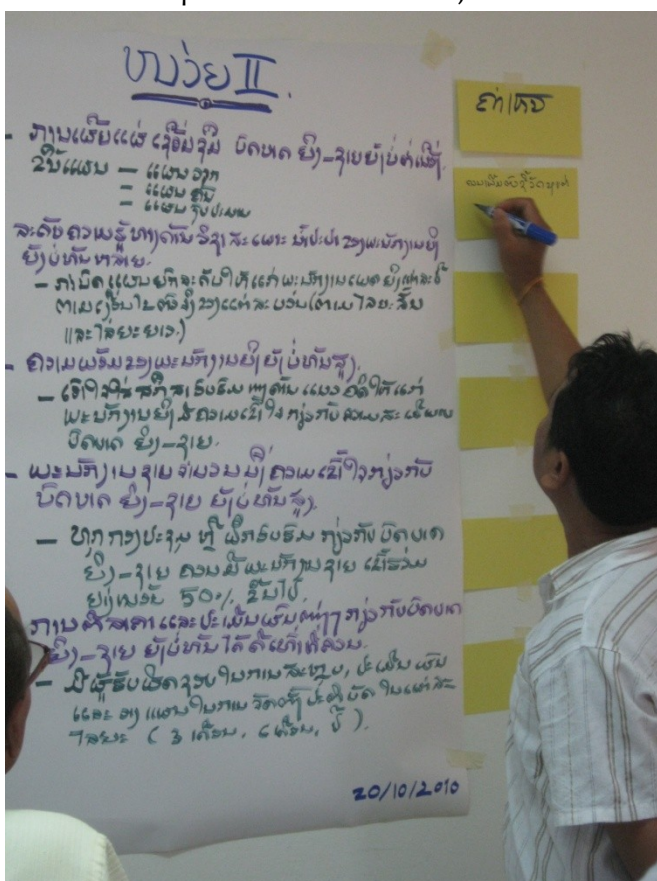 ໜ່ວຍ II
- ການເຜີຍແຜ່ ເຊື່ອມຊຶມ ບົດບາດ ຍິງ-ຊາຍຍັງບໍ່ທົ່ວເຖິງ.
ຂັ້ນແຜນ — ແຜນ
= ແຜນ
= ແຜນ ງົບປະມານ
ລະດັບຄວາມຮູ້ທາງດ້ານວິຊາສະເພາະ ນໍ້າປະປາ ຂອງພະນັກງານຍິງ
ຍັງບໍ່ທັນຫຼາຍ.
- ແຜນຍົກລະດັບໃຫ້ແກ່ພະນັກງານເພດຍິງ
ຕາມເງື່ອນໄຂຕົວຈິງຂອງແຕ່ລະບ່ອນ (ຕາມໄລຍະສັ້ນ
ແລະໄລຍະຍາວ)
- ຄວາມພ້ອມຂອງພະນັກງານຍິງຍັງບໍ່ທັນສູງ.
ພະນັກງານຍິງມີຄວາມເຂົ້າໃຈກ່ຽວກັບຄວາມສະເໝີພາບ
ບົດບາດ ຍິງ-ຊາຍ.
- ພະນັກງານຊາຍຈໍານວນໜຶ່ງຄວາມເຂົ້າໃຈກ່ຽວກັບ
ບົດບາດ ຍິງ-ຊາຍ ຍັງບໍ່ທັນສູງ.
— ທຸກກອງປະຊຸມ ຫຼື ຝຶກອົບຮົມ ກ່ຽວກັບ ບົດບາດ
ຍິງ-ຊາຍ ຄວນມີພະນັກງານຊາຍ ເຂົ້າຮ່ວມ
ຢ່າງໜ້ອຍ 50% ຂຶ້ນໄປ.
ການຕິດຕາມ ແລະປະເມີນຜົນຕ່າງໆ ກ່ຽວກັບບົດບາດ
ຍິງ-ຊາຍ ຍັງບໍ່ທັນໄດ້ດີເທົ່າທີ່ຄວນ.
- ມີຜູ້ຮັບຜິດຊອບໃນການສະຫຼຸບ, ປະເມີນຜົນ
ແລະ ວາງແຜນໃນການຈັດຕັ້ງປະຕິບັດ ໃນແຕ່ລະ
ໄລຍະ ( 3 ເດືອນ, 6 ເດືອນ, ປີ ).
20/10/2010